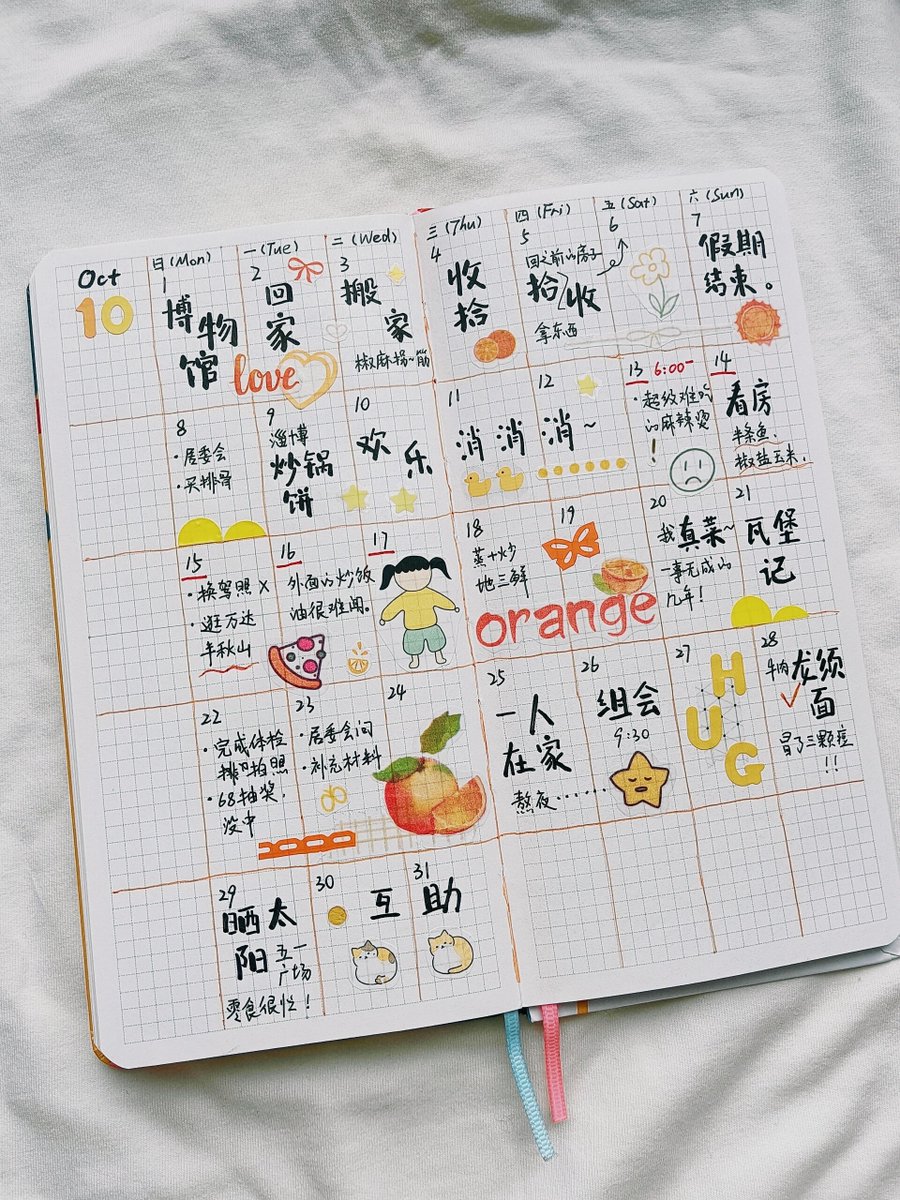 Oct
10
日(Mon)
一(Tue)
二(Wed)
三(Thu)
四(Fri)
五(Sat)
六(Sun)
1
博物
馆
2
回
家
love
3
搬
家
椒麻拐~筋
4
收
拾
5
回之前的房子
拾收
拿东西
6
7
假期
结束。
8
·居委会
·买排骨
9
淄博
炒锅
饼
10
欢
乐
11
消
消
12
消~
13 6:00
·超级难吃
的麻辣烫
!
14
看房
半条鱼.
椒盐玉米.
15
·换驾照×
·逛万达
半秋山
16
外面的炒饭
油很难闻。
17
18
蒸+炒
地三鲜
19
orange
20
我真菜~
一事无成的
几年!
21
瓦堡
记
22
·完成体检
拍照
·68抽奖,
没中
23
·居委会问
·补充材料
24
25
一人
在家
熬夜……
26
组会
9:30
27
HUG
28
牛肉龙须
面
冒了三颗痘
!!
29
晒太
阳
五一
广场
零食很忙!
30
互
31
助